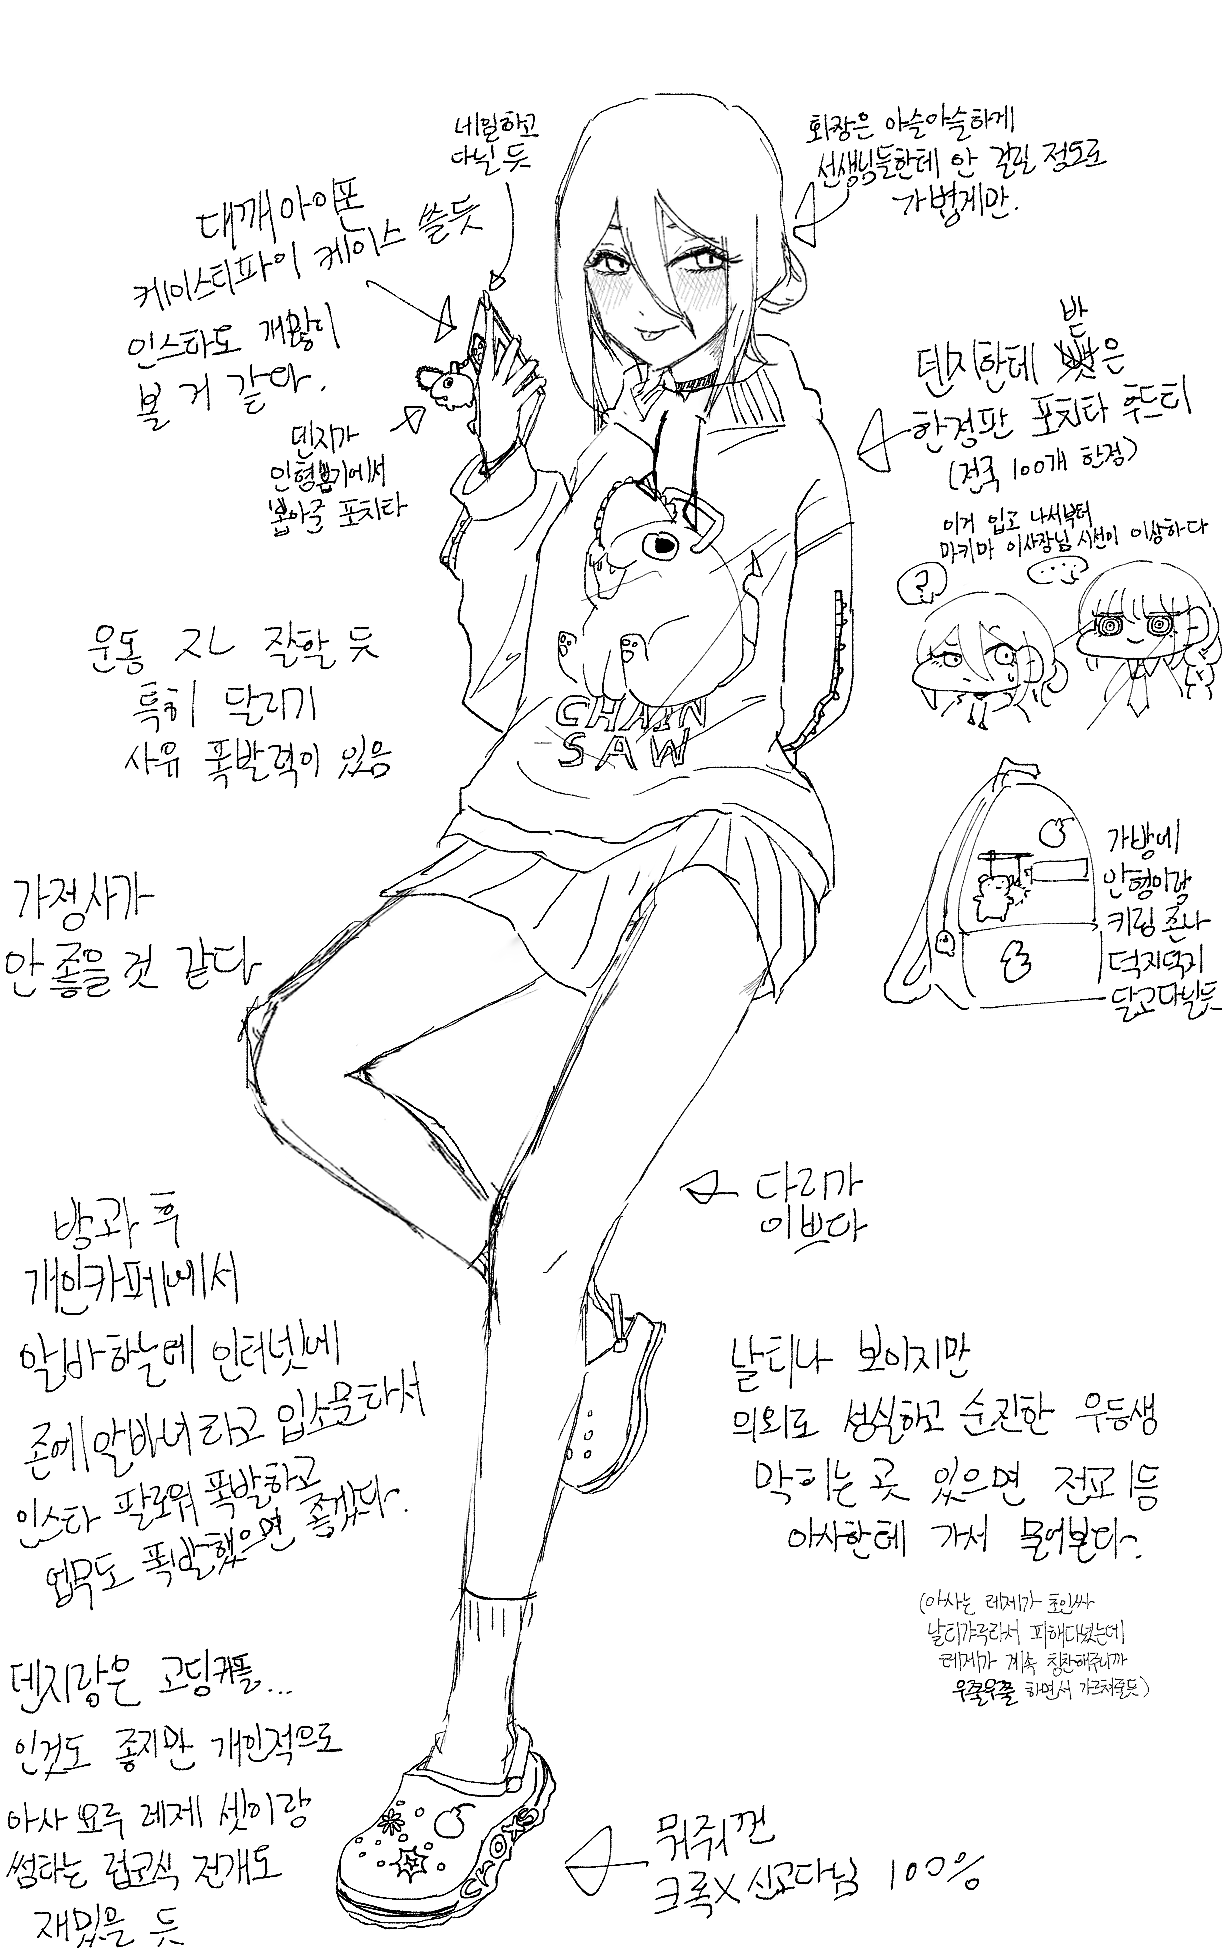 네일하고
다닐 듯
화장은 아슬아슬하게
선생님들한테 안 걸릴 정도로
가볍게만.
대깨아이폰
케이스티파이 케이스 쓸듯
인스타도 개많이
볼 거 같다.
덴지가
인형뽑기에서
뽑아줄 포치타
받
덴지한테 은
한정판 포치타 후드티
(전국 100개 한정)
이거 입고 나서부터
마키마 이사장님 시선이 이상하다
?
...
CHAIN
SAW
운동 ㅈㄴ 잘할 듯
특히 달리기
사유 폭발력이 있음
가정사가
안 좋을 것 같다
가방에
인형이랑
키링 존나
덕지덕지
달고다닐듯
다리가
이쁘다
방과 후
개인카페에서
알바하는데 인터넷에
존예알바녀라고 입소문타서
인스타 팔로워 폭발하고
업무도 폭발했으면 좋겠다.
날티나 보이지만
의외로 성실하고 순진한 우등생
막히는 곳 있으면 전교1등
아사한테 가서 물어본다.
(아사는 레제가 초인싸
날티갸루라서 피해다녔는데
레제가 계속 칭찬해주니까
우쭐우쭐 하면서 가르쳐줄듯)
덴지랑은 고딩커플...
인것도 좋지만 개인적으로
아사 요루 레제 셋이랑
썸타는 럽코식 전개도
재밌을 듯
CROXS
뭐줘껀
크록X 신고다님 100%